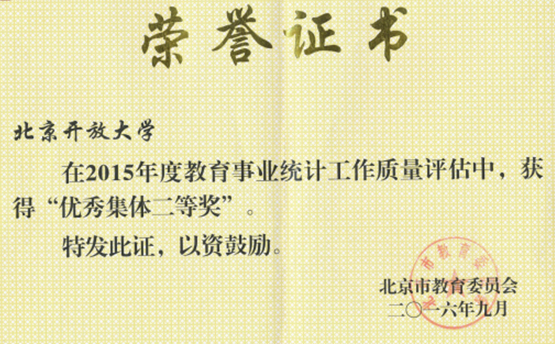 荣誉证书
北京开放大学
在2015年度教育事业统计工作质量评估中，获
得“优秀集体二等奖”。
特发此证，以资鼓励。
北京市教育委员会
二〇一六年九月